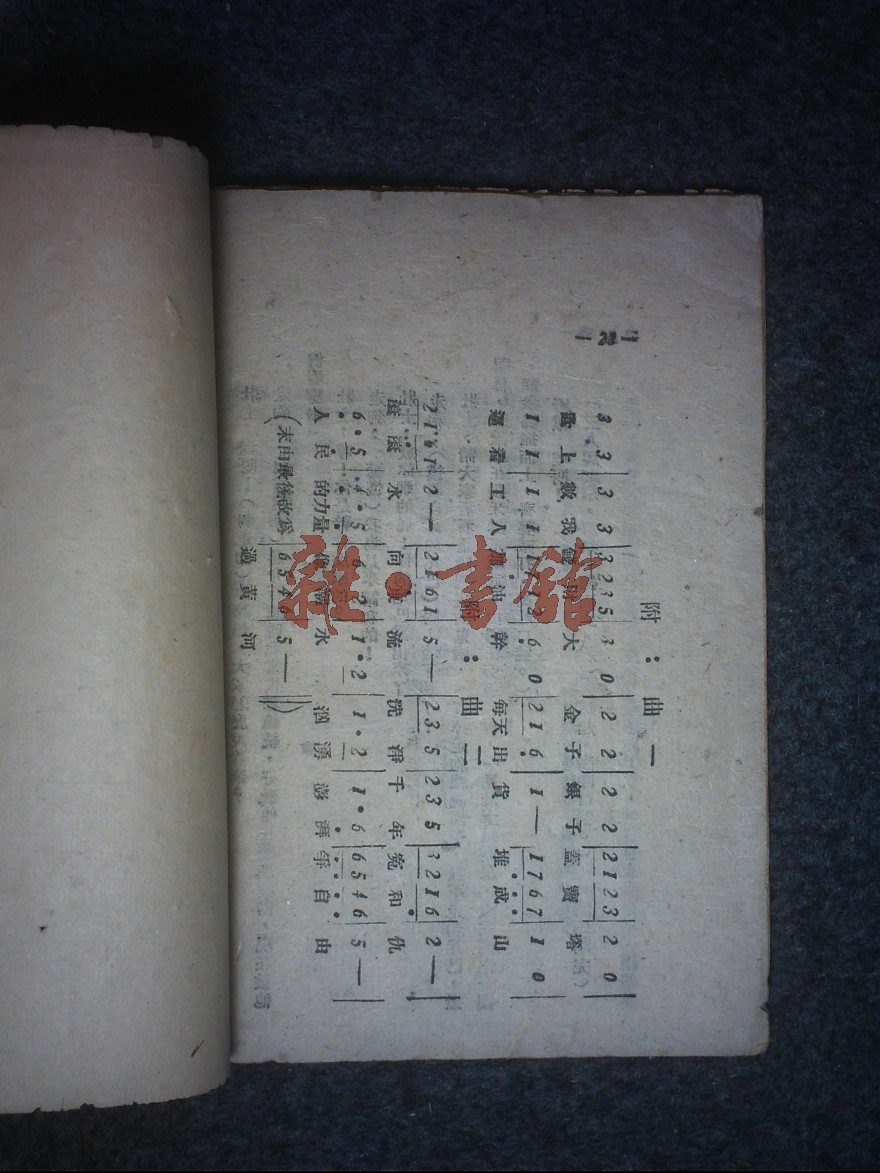 附：曲一
3 3 | 3 3 | 3 2 3 5 3 0 | 2 2 | 2 2 | 2 1 2 3 2 0 |
上數我 大 金子銀子蓋寶塔
1 1 | 1 1 | 6 0 | 2 1 6 | 1 — | 1 7 6 7 1 0 |
逼着工人 幹 每天出貨堆成山
附：曲二
2 1 6 1 2 — | 2 1 6 1 5 — | 2 3 5 | 2 3 5 | 3 2 1 6 2 — |
滋滋水 向 流 洗淨千年冤和仇
6·5 | 4·5 | 6 2 | 1·2 | 1·2 | 1·6 | 6 5 4 6 5 — |
人民的力量 水 洶湧澎湃爭自由
(末由最後改爲 | 6 5 4 6 5 — ‖)
過黃河
— 28 —
雜·書館